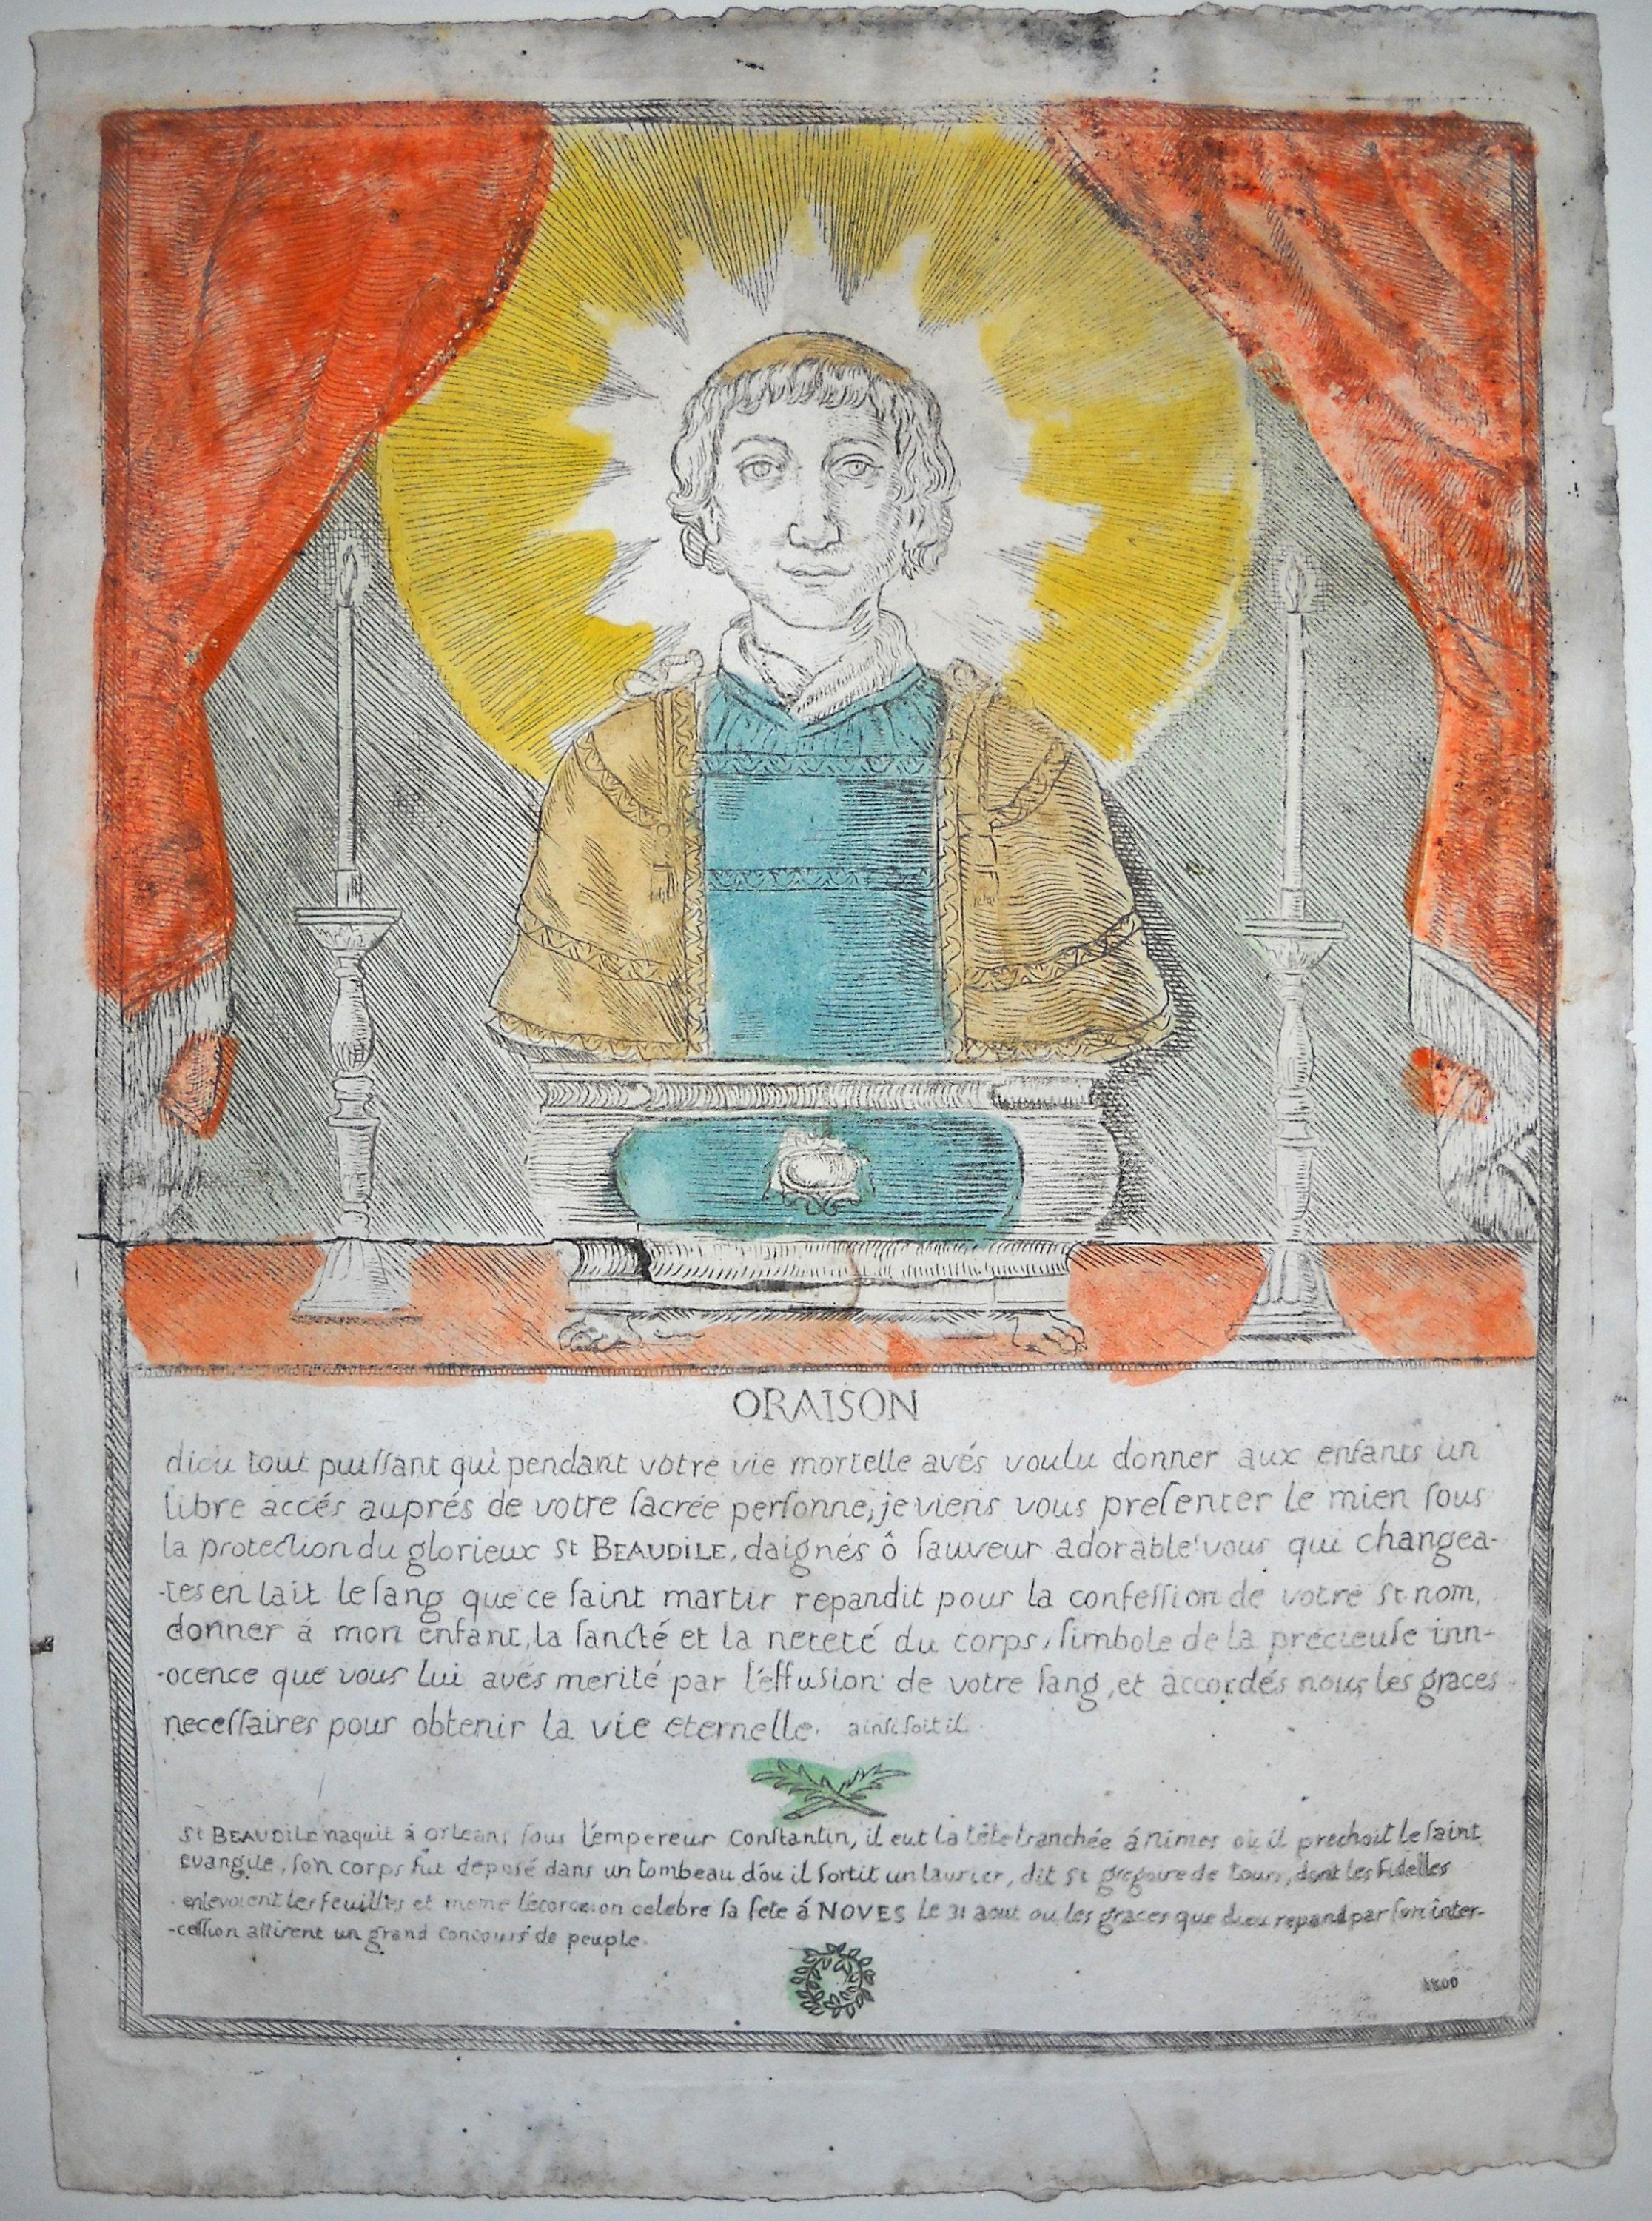 ORAISON
dieu tout puiſſant qui pendant votre vie mortelle avés voulu donner aux enfants un
libre accés auprés de votre ſacrée perſonne, je viens vous preſenter le mien ſous
la protection du glorieux St BEAUDILE, daignés ô ſauveur adorable! vous qui changea-
-tes en lait le ſang que ce ſaint martir repandit pour la confeſſion de votre St nom,
donner á mon enfant, la ſancté et la neteté du corps, ſimbole de la précieuſe inn-
-ocence que vous lui avés merité par l'éffuſion de votre ſang, et accordés nous les graces
neceſſaires pour obtenir la vie eternelle. ainſi ſoit il.
St BEAUDILE naquit à Orleans ſous l'empereur Conſtantin, il eut la tête tranchée á nimes ou il prechoit le ſaint
Evangile, ſon corps fut deposé dans un tombeau d'ou il ſortit un laurier, dit St gregoire de tours, dont les fidelles
enlevoient les feuilles et meme l'ecorce. on celebre ſa fete á NOVES le 31 aout ou les graces que dieu repand par ſon inter-
-ceſſion attirent un grand concours de peuple.
1800